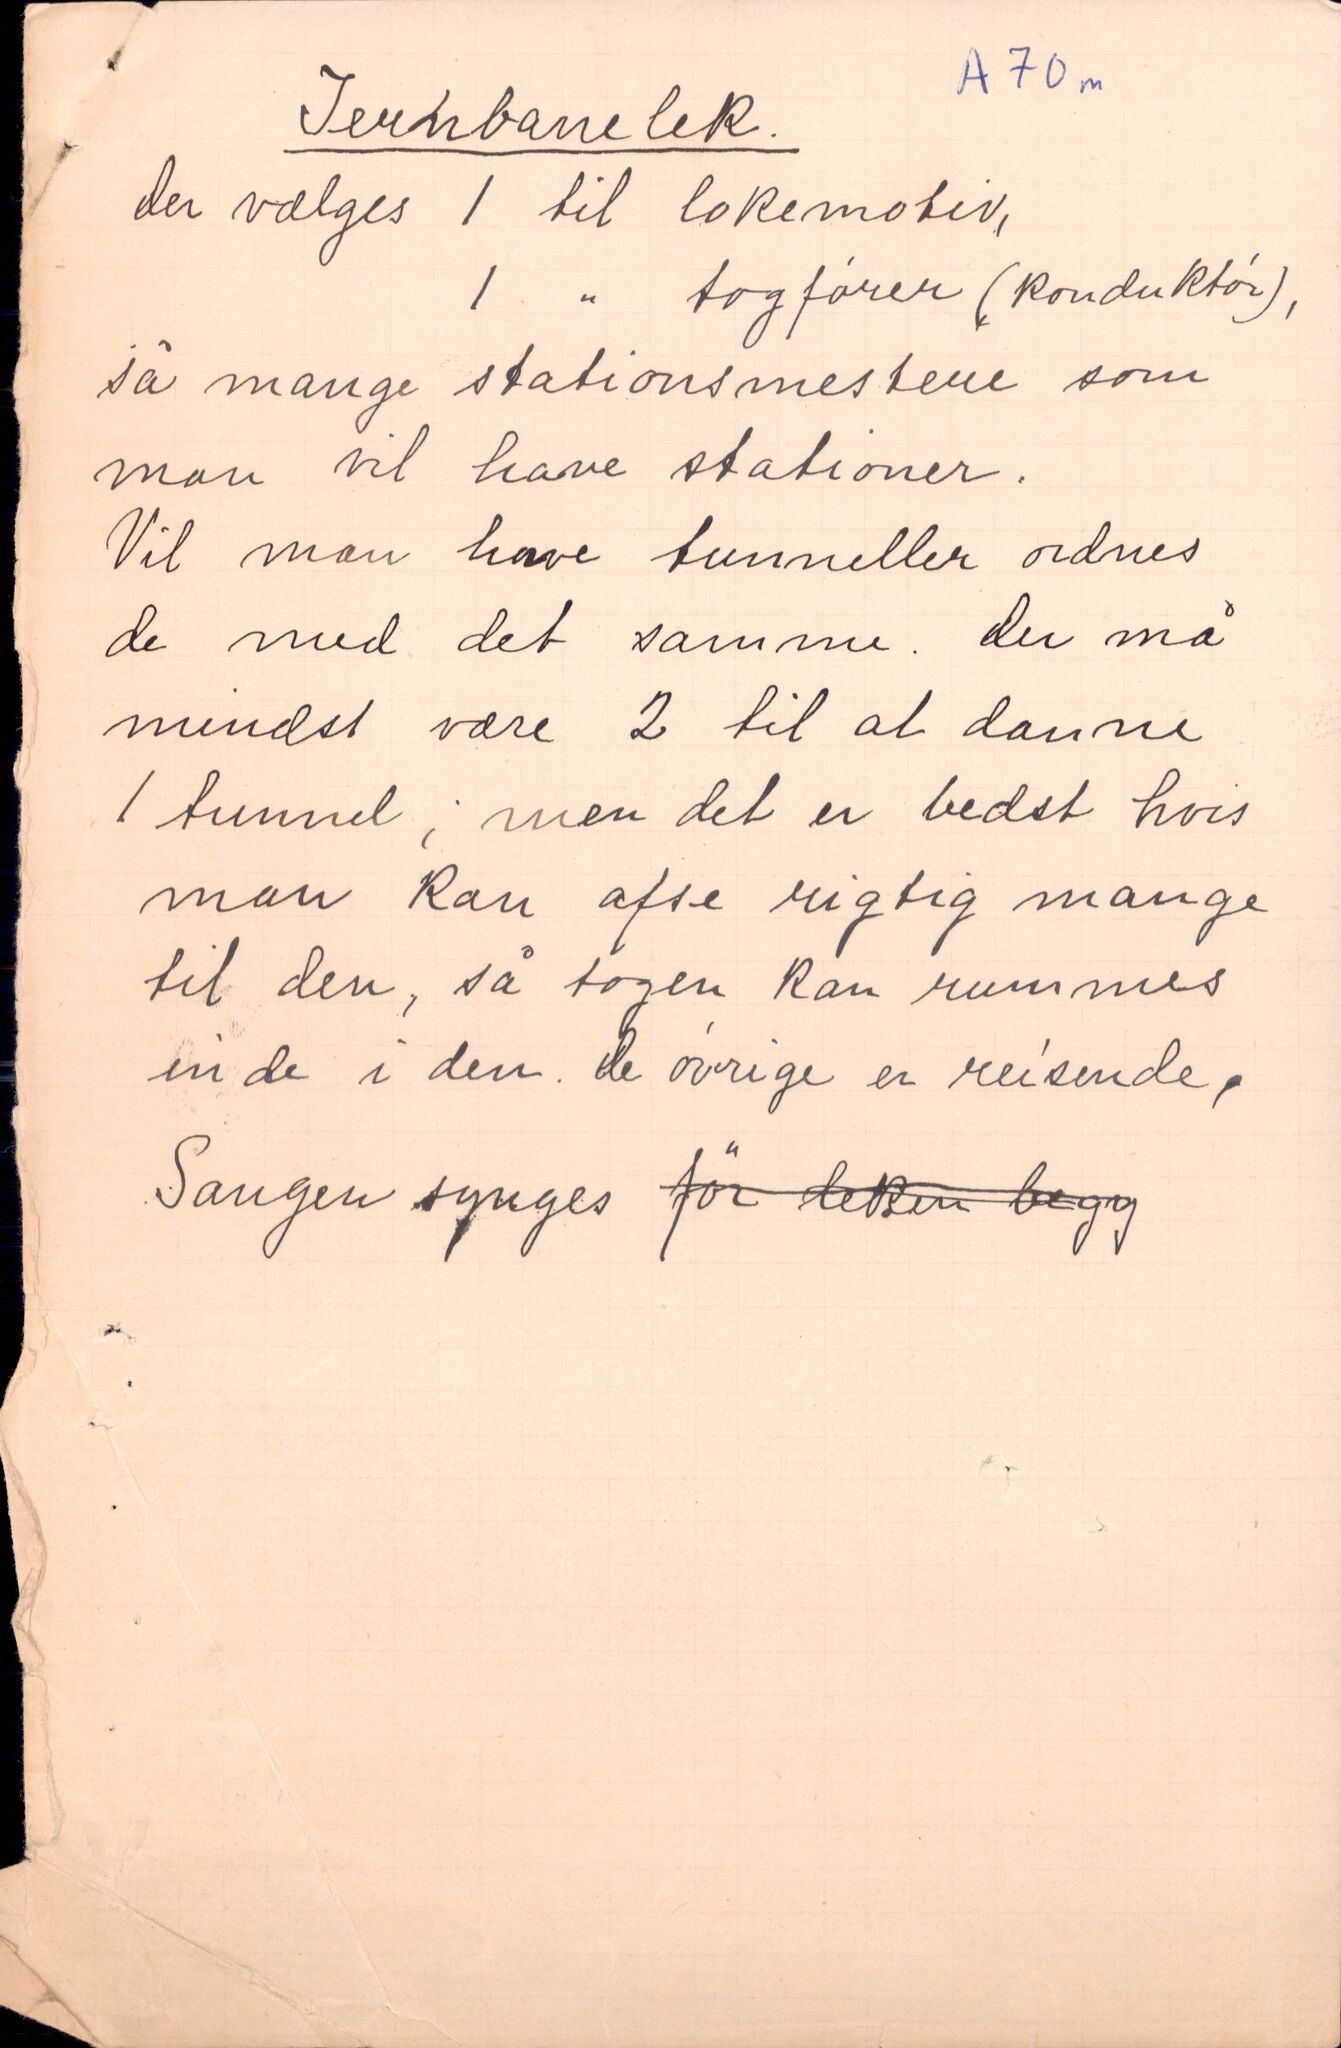 A 70m
Jernbanelek.
der vælges 1 til lokemotiv,
1 " togfórer (konduktór),
så mange stationsmestere som
man vil have stationer.
Vil man have tunneller ordnes
de med det samme. der må
mindst være 2 til at danne
1 tunnel; men det er bedst hvis
man kan afse rigtig mange
til den, så togen kan rummes
inde i den. de óvrige er reisende,
Sangen synges för leken begy